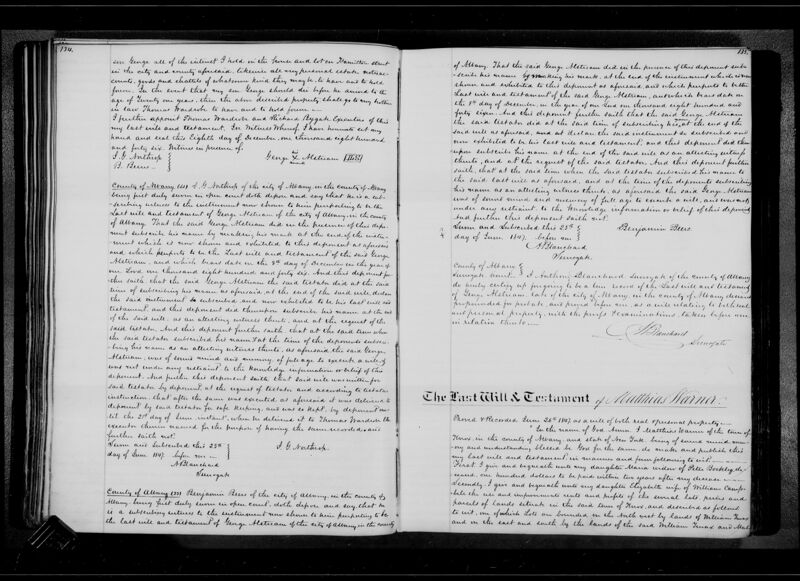 134.
son George all of the interest I hold in the house and lot on Hamilton street
in the city and county aforesaid, likewise all my personal estate notes ac-
counts, goods and chattels of whatsoever kind they may be, to have and to hold
forever. In the event that my son George should die before he arrived to the
age of twenty one years, then the above described property shall go to my brother
in law Thomas Wardrobe to have and to hold forever.
I further appoint Thomas Wardrobe and Richard Bygate Executors of this
my last will and testament. In Witness Whereof I have hereunto set my
hand and seal this Eighth day of December, one thousand eight hundred
and forty six. Witness in presence of
I. G. Northrop
B. Beers
George X Metream
County of Albany ss: I. G. Northrop of the city of Albany in the county of Albany
being first duly sworn in open court doth depose and say that he is a sub-
scribing witness to the instrument now shown to him purporting to be the
Last will and testament of George Metream of the city of Albany in the county
of Albany. That the said George Metream did in the presence of this depo-
nent subscribe his name by making his mark at the end of the instru-
ment which is now shown and exhibited to this deponent as aforesaid
and which purports to be the Last will and testament of the said George
Metream, and which bears date on the 8th day of December in the year of
our Lord one thousand eight hundred and forty six. And this deponent fur-
ther saith that the said George Metream the said testator did at the said
time of subscribing his name as aforesaid, at the end of the said will, declare
the said instrument so subscribed and now exhibited to be his last will and
testament, and this deponent did thereupon subscribe his name at the end
of the said will, as an attesting witness thereto, and at the request of the
said testator. And this deponent further saith, that at the said time when
the said testator subscribed his name and at the time of the deponents subscri-
bing his name as an attesting witness thereto, as aforesaid the said George
Metream, was of sound mind and memory, of full age to execute a will, &
was not under any restraint to the knowledge information or belief of this
deponent. And further this deponent saith that said will was written for
said testator by deponent, at the request of testator and according to testators
instruction that after the same was executed as aforesaid it was delivered to
deponent by said testator for safe keeping, and was so kept by deponent un-
til the 21st day of June instant when he delivered it to Thomas Wardrobe the
executor therein named for the purpose of having the same recorded and
further saith not.
Sworn and subscribed this 25th
day of June 1847. before me
A Blanchard
Surrogate
I. G. Northrop.
County of Albany ss: Benjamin Beers of the city of Albany in the county of
Albany being first duly sworn in open court, doth depose and say, that he
is a subscribing witness to the instrument now shown to him purporting to be
the last will and testament of George Metream of the city of Albany, in the county
135.
of Albany. That the said George Metream did in the presence of this deponent sub-
scribe his name by making his mark, at the end of the instrument which is now
shown and exhibited to this deponent as aforesaid and which purports to be the
Last will and testament of the said George Metream, and which bears date on
the 8th day of December in the year of our Lord one thousand eight hundred and
forty six. And this deponent further saith that the said George Metream
the said testator did at the said time of subscribing his at the end of the
said will as aforesaid, and did declare the said instrument so subscribed and
now exhibited to be his last will and testament, and this deponent did there-
upon subscribe his name at the end of the said will as an attesting witness
thereto, and at the request of the said testator. And this deponent further
saith, that at the said time when the said testator subscribed his name to
the said last will as aforesaid, and at the time of the deponents subscribing
his name as an attesting witness thereto, as aforesaid the said George Metream
was of sound mind and memory of full age to execute a will, and was not
under any restraint to the knowledge information or belief of this deponent
And further this deponent saith not.
Sworn and Subscribed this 25th
day of June 1847. before me
A Blanchard
Surrogate.
Benjamin Beers
County of Albany
Surrogate Court I Anthony Blanchard Surrogate of the county of Albany
do hereby certify the foregoing to be a true record of the Last will and testament
of George Metream late of the city of Albany, in the county of Albany deceased
propounded for probate and proved before me as a will relating to both real
and personal property with the proofs & examinations taken before me
in relation thereto
A Blanchard
Surrogate
The Last Will & Testament of Matthias Warner.
Proved & Recorded June 26th 1847, as a will of both real & personal property
In the name of God Amen. I Matthias Warner of the town of
Knox, in the county of Albany, and state of New York being of sound mind mem-
ory and understanding blessed be God for the same do make and publish this
my last will and testament, in manner and form following to wit:
First I give and bequeath unto my daughter Maria widow of Peter de-
ceased, one hundred dollars to be paid within two years after my decease
Secondly, I give and bequeath unto my daughter Elizabeth wife of William Camp-
bell the use and improvements rents and profits of the several lots, pieces and
parcels of Lands situate in the said town of Knox, and described as follows
to wit, one of which lots are bounded in the North west by lands of William Knox
and on the east and south by the lands of the said William Knox and